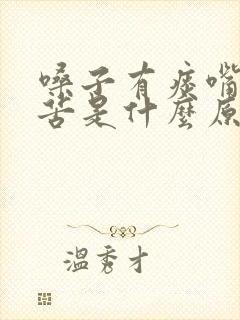 嗓子有痰嘴
苦是什麼原
溫秀才